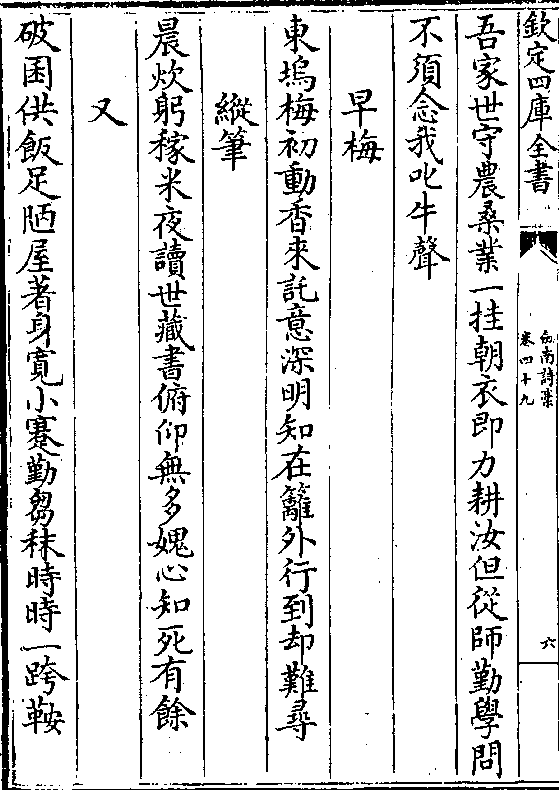 欽定四庫全書
劍南詩槀
卷四十九
六
吾家世守農桑業一挂朝衣即力耕汝但從師勤學問
不須念我叱牛聲
早梅
東塢梅初動香來託意深明知在籬外行到却難尋
縱筆
晨炊躬稼米夜讀世藏書俯仰無多媿心知死有餘
又
破囷供飯足陋屋著身寛小蹇勤芻秣時時一跨鞍